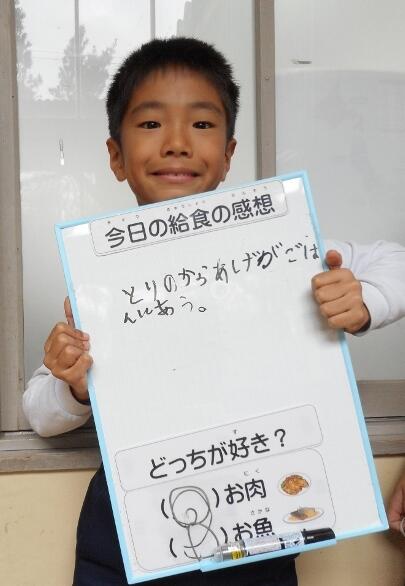 今日の給食の感想
とりのからあげがごは
んにあう。
どっちが好き？
( )お肉
( )お魚